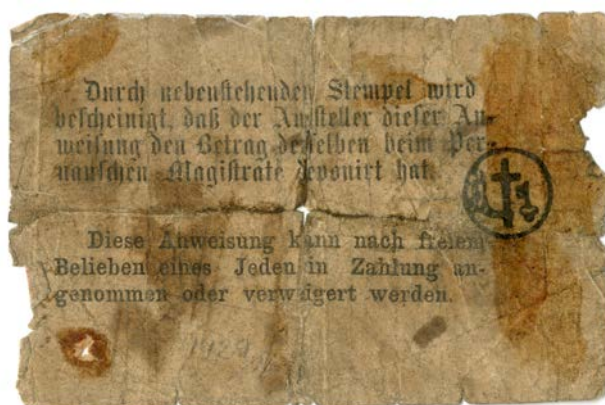 Durch nebenstehenden Stempel wird
bescheinigt, daß der Aussteller dieser An-
weisung den Betrag desselben beim Per-
nauschen Magistrate deponirt hat.
Diese Anweisung kann nach freiem
Belieben eines Jeden in Zahlung an-
genommen oder verweigert werden.